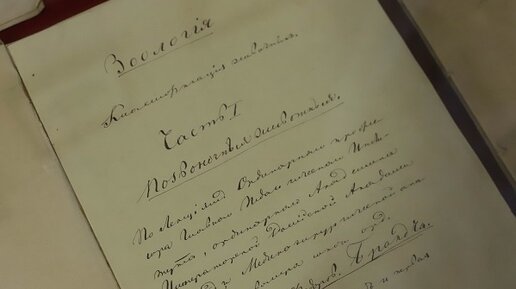 Зоологія
Классификація животныхъ.
Часть I
Позвоночныя животныя.
По лекціямъ Ординарнаго профес
сора Главнаго Педагогическаго Инсти
тута, ординарнаго Академика
Императорской Россійской Академіи
Медико-хирургической ака
орд.
Брандта.